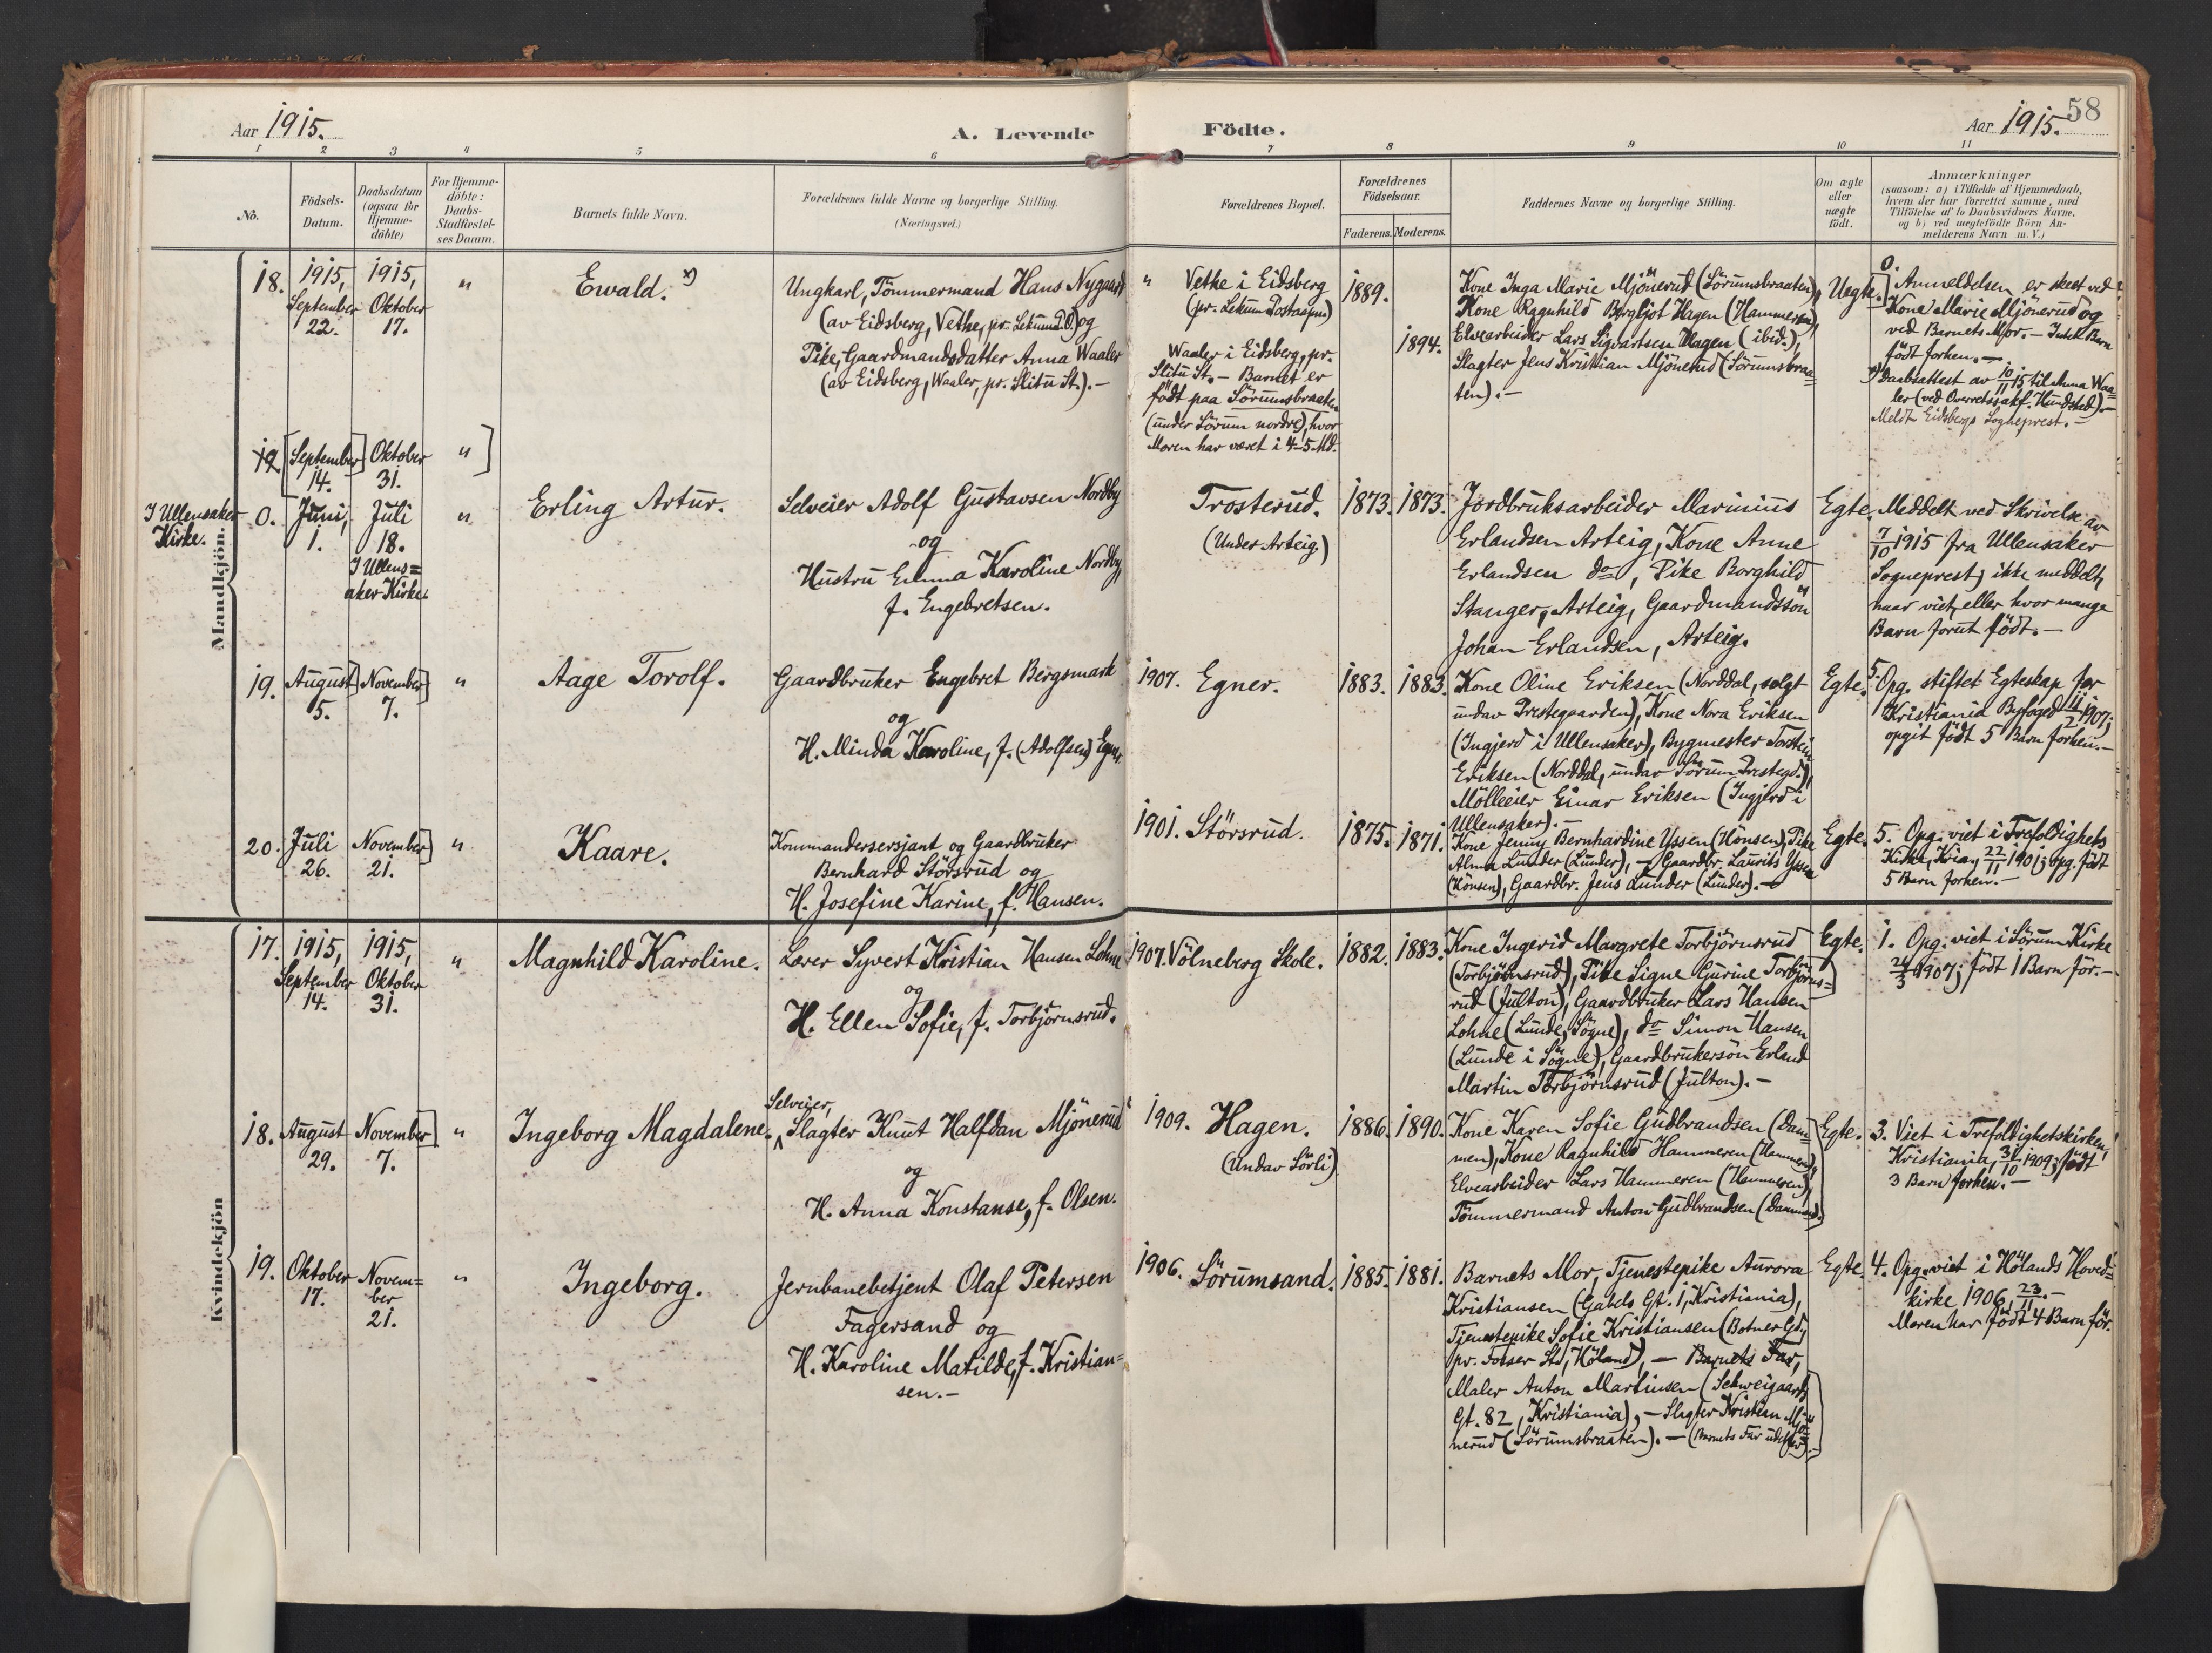 58
Aar 1915.
A. Levende Födte.
Aar 1915.
1 2 3 4 5 6 7 8 9 10 11
No.
Födsels-
Datum.
Daabsdatum
(ogsaa for
Hjemme-
döbte)
For Hjemme-
döbte:
Daabs-
Stadfæstel-
ses Datum.
Barnets fulde Navn.
Forældrenes fulde Navne og borgerlige Stilling.
(Næringsvei.)
Forældrenes Bopæl.
Forældrenes
Födselsaar.
Faderens. Moderens.
Faddernes Navne og borgerlige Stilling.
Om ægte
eller
uægte
födt.
Anmærkninger
(saasom: a) i Tilfælde af Hjemmedaab,
hvem der har forrettet samme, med
Tilföielse af to Daabsvidners Navne,
og b) ved uægtefödte Börn An-
melderens Navn m. V.)
Mandkjön.
18.
1915,
September
22.
1915,
Oktober
17.
"
Ewald. x)
Ungkarl, Tömmermand Hans Nygaard
(av Eidsberg, Vethe, pr. Lekum P.O.) og
Pike, Gaardmandsdatter Anna Waaler
(av Eidsberg, Waaler, pr. Slitu St.). -
"
Vethe i Eidsberg
(pr. Lekum Postaapni)
Waaler i Eidsberg, pr.
Slitu St. - Barnet er
födt paa Sörumsbraaten
(under Sörum nordre), hvor
Moren har været i 4-5 Md.
1889.
1894.
Kone Inga Marie Mjönerud (Sörumsbraaten),
Kone Ragnhild Bergljot Hagen (Hammeren),
Elvearbeider Lars Sigvartsen Hagen (ibid.),
Slagter Jens Kristian Mjönerud (Sörumsbraa=
ten). -
Uegte.
0. Anmeldelsen er skeet ved
Kone Marie Mjönerud og
ved Barnets Mor. - Intet Barn
födt forhen. -
x) Daabsattest av 10/11 15 til Anna Waa=
ler (ved Overretssakf. Hundsted). -
Meldt Eidsbergs Sogneprest. -
19.
[September]
14.
Oktober
31.
" ]
I Ullensaker
Kirke.
0.
Juni,
1.
Juli
18.
I Ullens=
aker Kirke.
"
Erling Artur.
Selveier Adolf Gustavsen Nordby
og
Hustru Emma Karoline Nordby,
f. Engebretsen.
Trosterud.
(Under Arteig.)
1873. 1873.
Jordbruksarbeider Marinius
Erlandsen Arteig, Kone Anne
Erlandsen do, Pike Borghild
Stanger, Arteig, Gaardmandssön
Johan Erlandsen, Arteig.
Egte.
Meddelt ved Skrivelse av
7/10 1915 fra Ullensaker
Sogneprest; ikke meddelt,
naar viet, eller hvor mange
Barn forut födt. -
19.
August]
5.
November]
7.
"
Aage Torolf.
Gaardbruker Engebret Bergsmark
og
H. Minda Karoline, f. (Adolfsen) Egner
1907. Egner.
1883. 1883.
Kone Oline Eriksen (Norddal, solgt
undav Prestegaarden), Kone Nora Eriksen
(Ingjerd i Ullensaker), Bygmester Torstein
Eriksen (Norddal, undav Sörum Prestegd.),
Mölleeier Einar Eriksen (Ingjerd i
Ullensaker). -
Egte.
5. Opg. stiftet Egteskap for
Kristiania Byfoged 11/2 1907;
opgit födt 5 Barn forhen. -
20.
Juli
26.
November]
21.
"
Kaare.
Kommandersersjant og Gaardbruker
Bernhard Störsrud og
H. Josefine Karine, f. Hansen.
1901. Störsrud.
1875. 1871.
Kone Jenny Bernhardine Yssen (Hönsen), Pike
Alma Lunder (Lunder), - Gaardbr. Laurits Yssen
(Hönsen), Gaardbr. Jens Lunder (Lunder). -
Egte.
5. Opg. viet i Trefoldighets
Kirke, Kria., 22/11 1901; opg. födt
5 Barn forhen. -
Kvindekjön
17.
1915,
September
14.
1915,
Oktober
31.
"
Magnhild Karoline.
Lærer Syvert Kristian Hansen Lohne
og
H. Ellen Sofie, f. Torbjörnsrud.
1907. Völneberg Skole.
1882. 1883.
Kone Ingerid Margrete Torbjörnsrud
(Torbjörnsrud), Pike Signe Gurine Torbjörns=
rud (Julton), Gaardbruker Lars Hansen
Lohne (Lunde, Sögne), do Simon Hansen
(Lunde i Sögne), Gaardbrukersön Erland
Martin Torbjörnsrud (Julton). -
Egte.
1. Opg. viet i Sörum Kirke
24/3 1907; födt 1 Barn för. -
18.
August
29.
November]
7.
"
Ingeborg Magdalene.
Selveier,
Slagter Knut Halfdan Mjönerud
og
H. Anna Konstanse, f. Olsen.
1909. Hagen.
(Undav Sörli)
1886. 1890.
Kone Karen Sofie Gudbrandsen (Dam=
men), Kone Ragnhild Hammeren (Hammeren),
Elvearbeider Lars Hammeren (Hammeren),
Tömmermand Anton Gudbrandsen (Dammen).
Egte.
3. Viet i Trefoldighetskirken,
Kristiania, 31/10 1909; födt
3 Barn forhen. -
19.
Oktober
17.
Novem=
ber
21.
"
Ingeborg.
Jernbanebetjent Olaf Petersen
Fagersand og
H. Karoline Matilde, f. Kristian=
sen. -
1906. Sörumsand.
1885. 1881.
Barnets Mor, Tjenestepike Aurora
Kristiansen (Gabels Gt. 1, Kristiania),
Tjenestepike Sofie Kristiansen (Botner Gd.,
pr. Fosser St., Höland), - Barnets Far,
Maler Anton Martinsen (Schweigaards
Gt. 82, Kristiania), - Slagter Kristian Mjö=
nerud (Sörumsbraaten). - (Barnets Far
Egte.
4. Opg. viet i Hölands Hoved=
kirke 1906, 23/11. -
Moren har födt 4 Barn för.